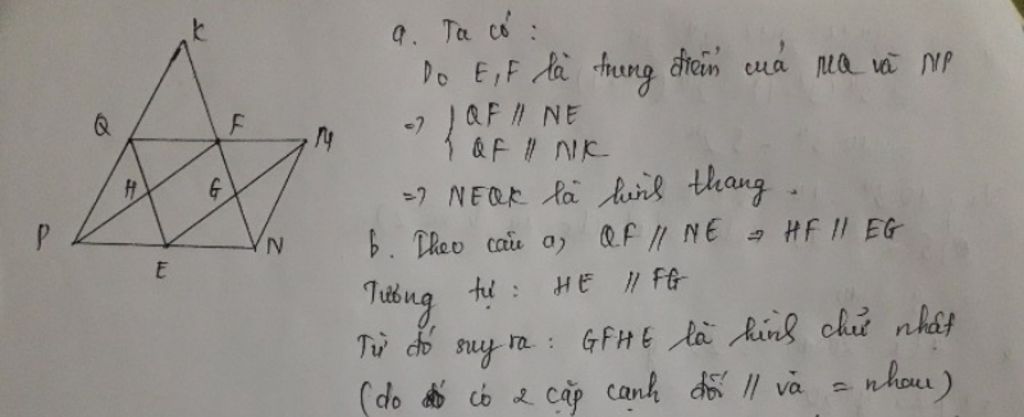 K
a. Ta có :
Do E, F là trung điểm của MQ và NP
Q F M
=> { QF // NE
QF // NK
H G
=> NEQK là hình thang.
P E N
b. Theo câu a, QF // NE => HF // EG
Tương tự : HE // FG
Từ đó suy ra : GFHE là hình chữ nhật
(do có 2 cặp cạnh đối // và = nhau)